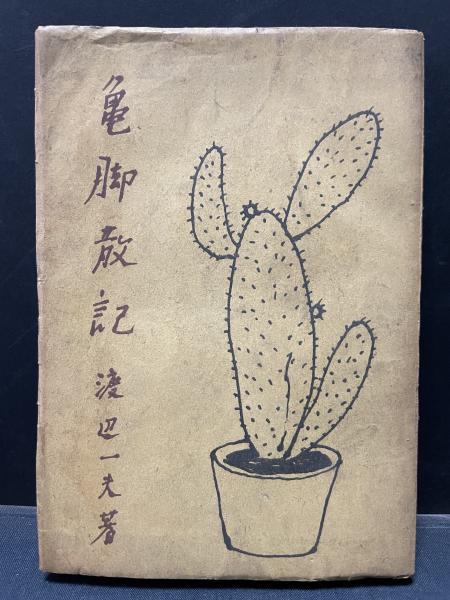 亀脚散記
渡辺一夫著